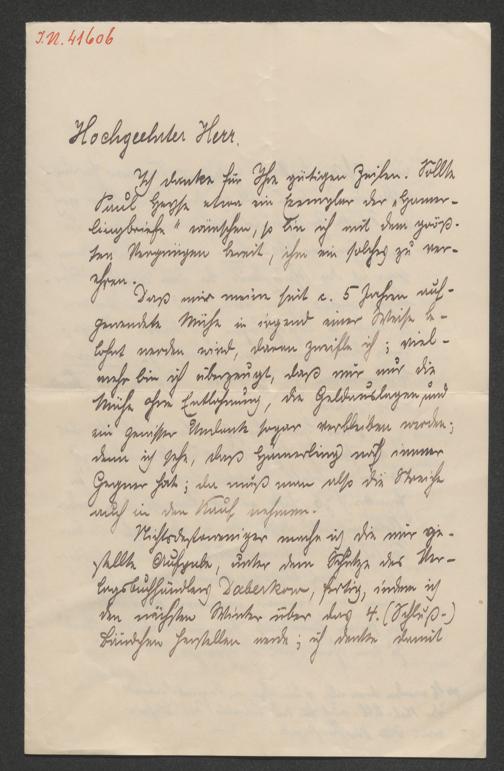 I.N. 41606
Hochgeehrter Herr.
Ich danke für Ihre gütigen Zeilen. Sollte
Paul Heyse etwa ein Exemplar der „Hamer-
lingbriefe“ wünschen, so bin ich mit dem größ-
ten Vergnügen bereit, ihm ein solches zu ver-
ehren.
Daß mir meine seit c. 5 Jahren auf-
gewendete Mühe in irgend einer Weise be-
lohnt werden wird, daran zweifle ich; viel-
mehr bin ich überzeugt, daß mir nur die
Mühe ohne Entlohnung, die Geldauslagen, und
ein gewisser Undank sogar verbleiben werden;
denn ich sehe, daß Hamerling noch immer
Gegner hat; da muß man also die Streiche
auch in den Kauf nehmen.
Nichtsdestoweniger mache ich die mir ge-
stellte Aufgabe, unter dem Schutze des Ver-
lagsbuchhändlers Daberkow, fertig, indem ich
den nächsten Winter über das 4. (Schluß-)
Bändchen herstellen werde; ich denke damit